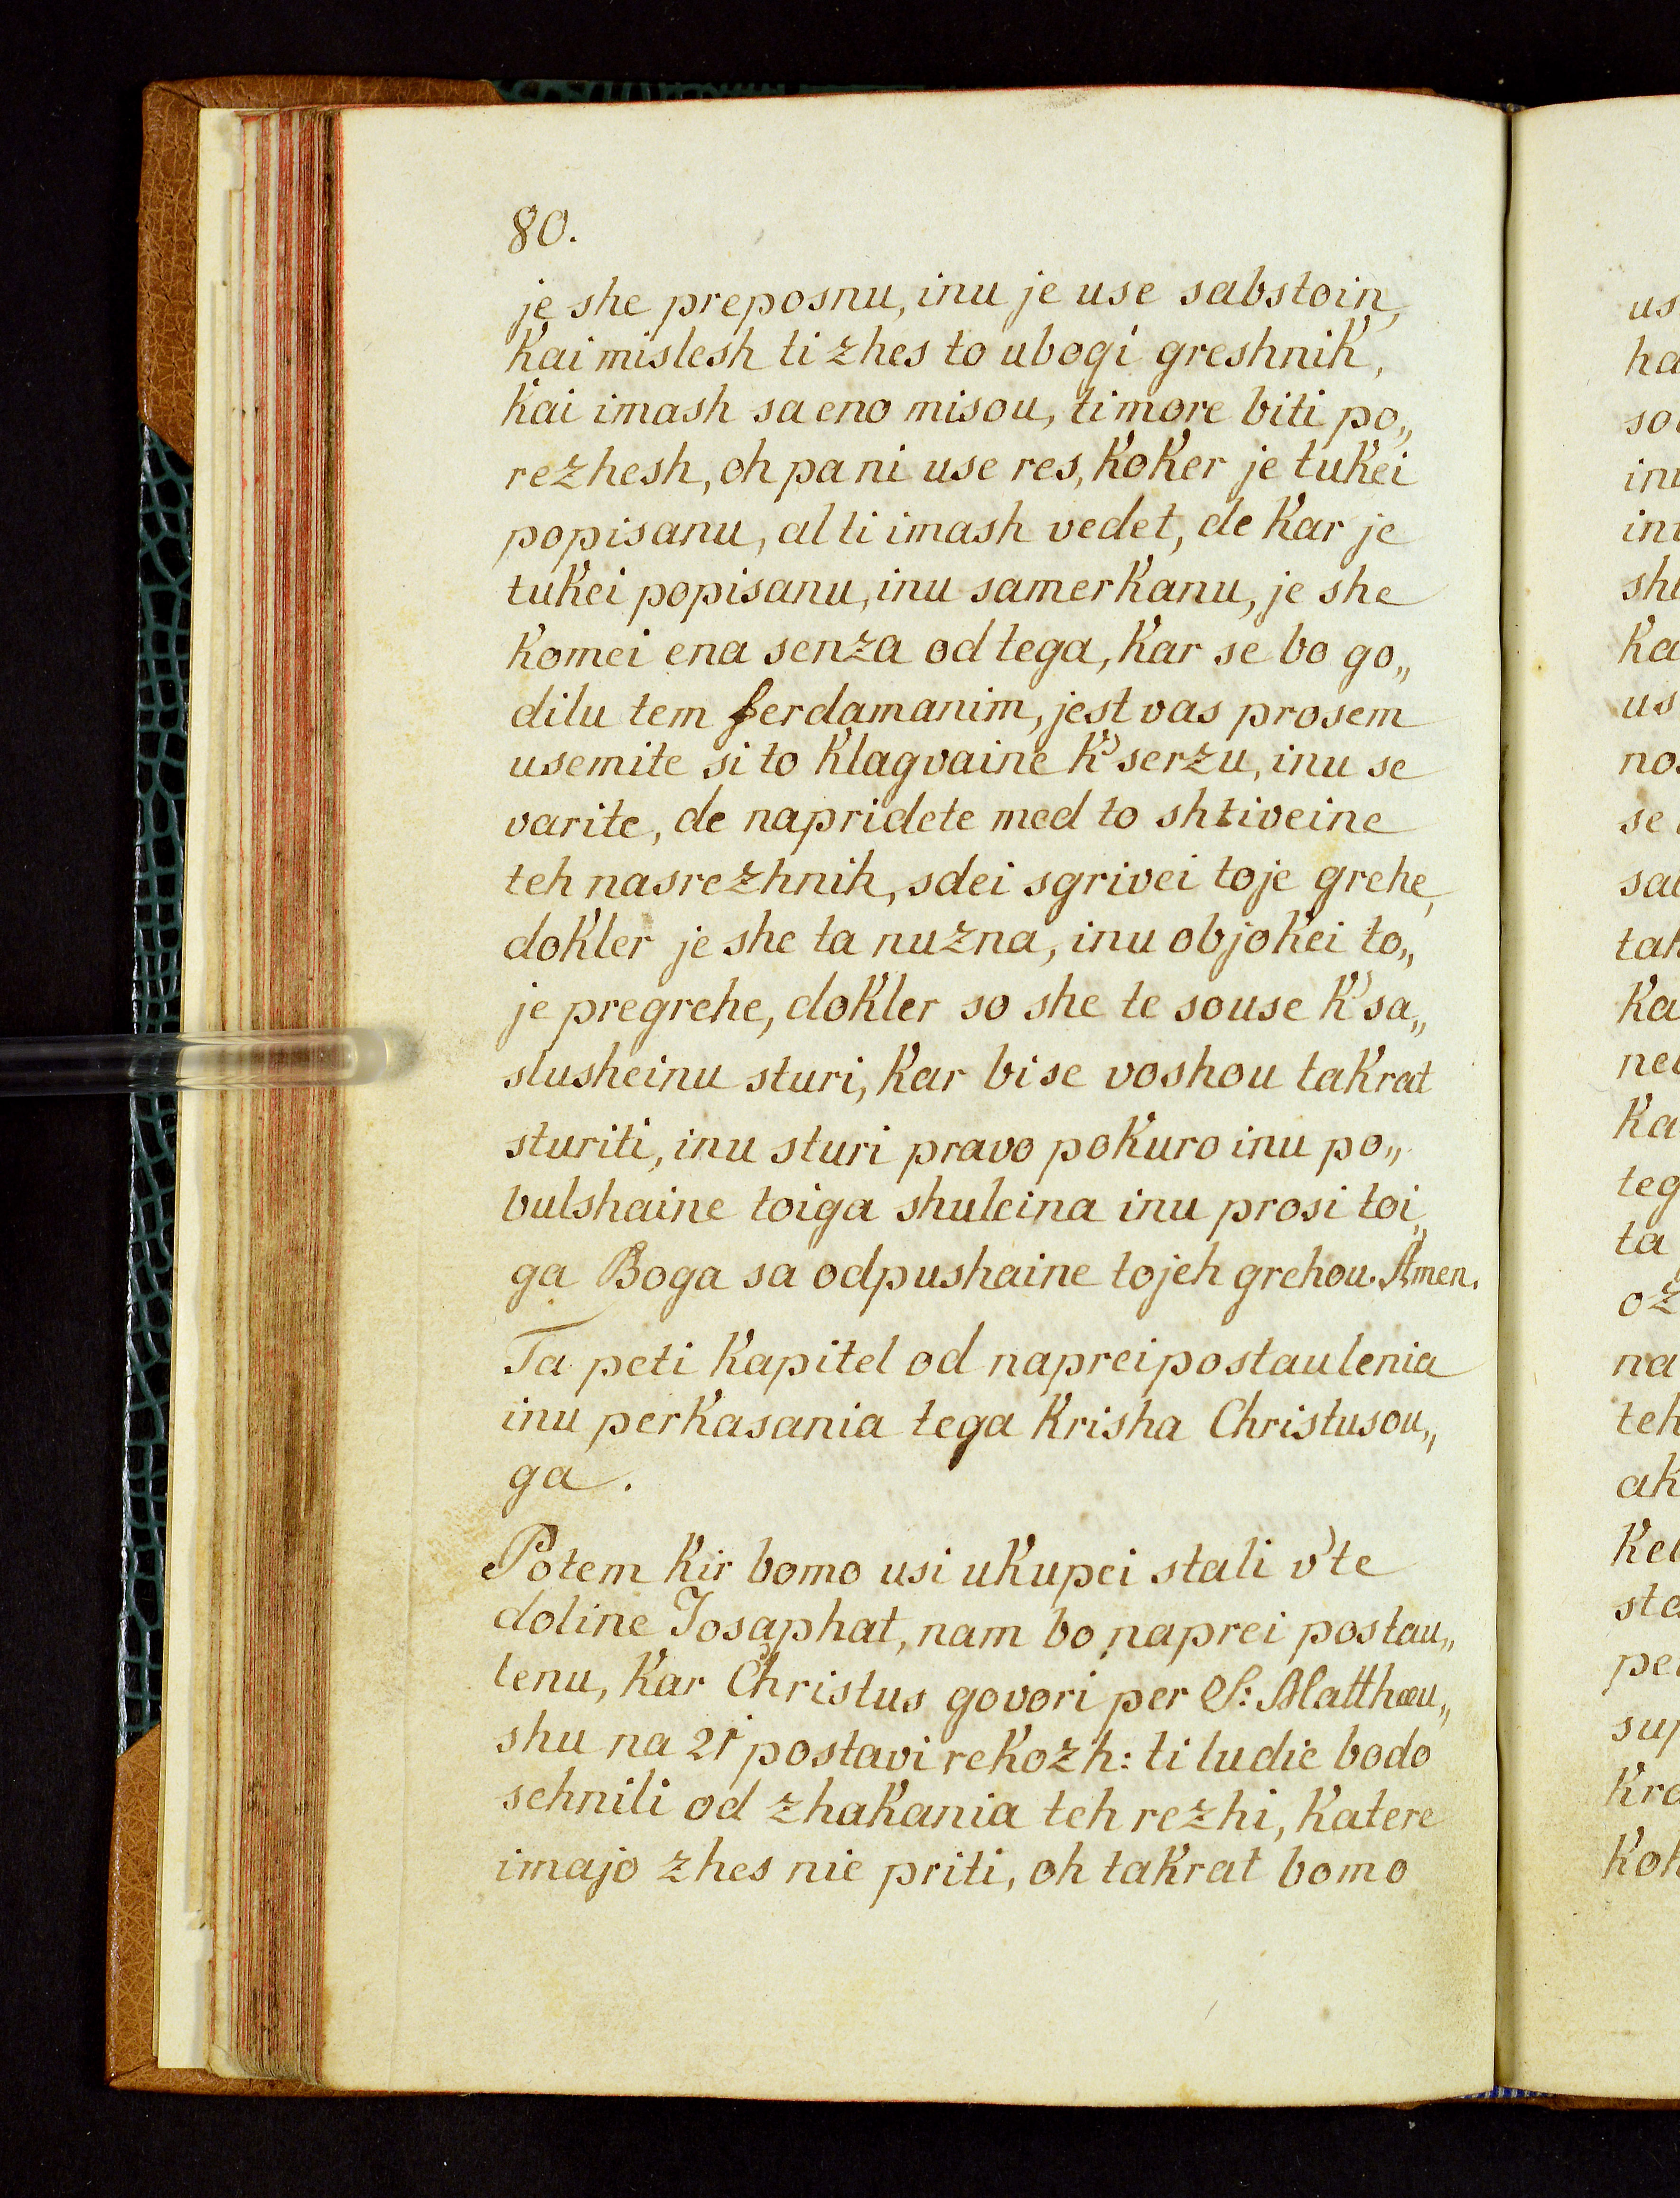 80.
je she preposnu, inu je use sabstoin,
kai mislesh ti zhes to ubogi greshnik,
kai imash sa eno misou, ti more biti po„
rezhesh, oh pa ni use res, koker je tukei
popisanu, al ti imash vedet, de kar je
tukei popisanu, inu samerkanu, je she
komei ena senza od tega, kar se bo go„
dilu tem ferdamanim, jest vas prosem
usemite si to klagvaine k' serzu, inu se
varite, de napridete med to shtiveine
teh nasrezhnih, sdei sgrivei toje grehe,
dokler je she ta nuzna, inu objokei to„
je pregrehe, dokler so she te souse k' sa„
slusheinu sturi, kar bi se voshou takrat
sturiti, inu sturi pravo pokuro inu po„
bulshaine toiga shuleina inu prosi toi„
ga Boga sa odpushaine tojeh grehou. Amen.
Ta peti kapitel od naprei postaulenia
inu perkasania tega krisha Christusou„
ga.
Potem kir bomo usi ukupei stali v' te
doline Josaphat, nam bo naprei postau„
lenu, kar Christus govori per S: Matthæu„
shu na 21 postavi rekozh: ti ludie bodo
sehnili od zhakania teh rezhi, katere
imajo zhes nie priti, oh takrat bomo